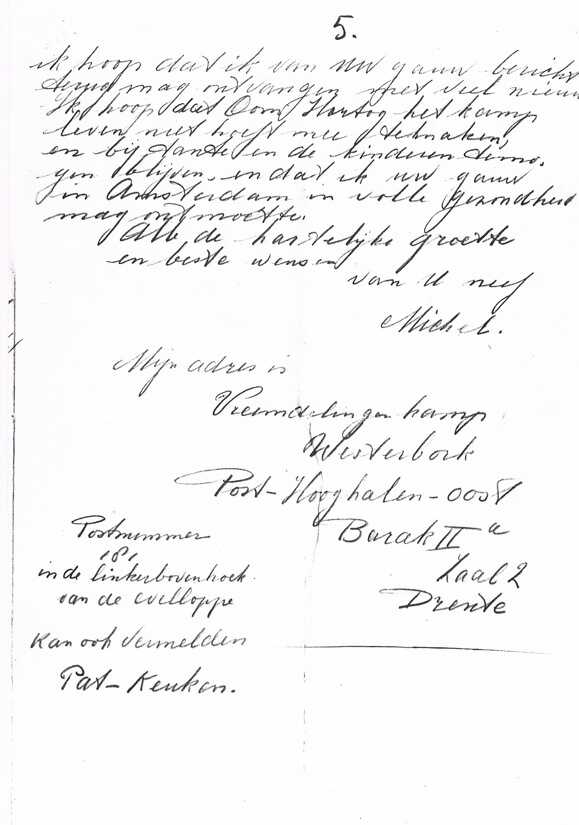 5.
ik hoop dat ik van UW gauw bericht
terug mag ontvangen met veel nieuws
Ik hoop dat Oom Hartog het kamp
leven niet hoeft mee temaken,
en bij tante en de kinderen
blijven. en dat ik uw gauw
in Amsterdam in volle gezondheid
mag ontmoette.
Alle de hartelijke groette
en beste wensen
van U neef
Michel.
Mijn adres is
Vreemdelingen kamp
Westerbork
Post-Hooghalen-oost
Barak II a
Zaal 2
Drente
Postnummer
181
in de linkerbovenhoek
van de envloppe
Kan ook vermelden
Pat- Keuken.